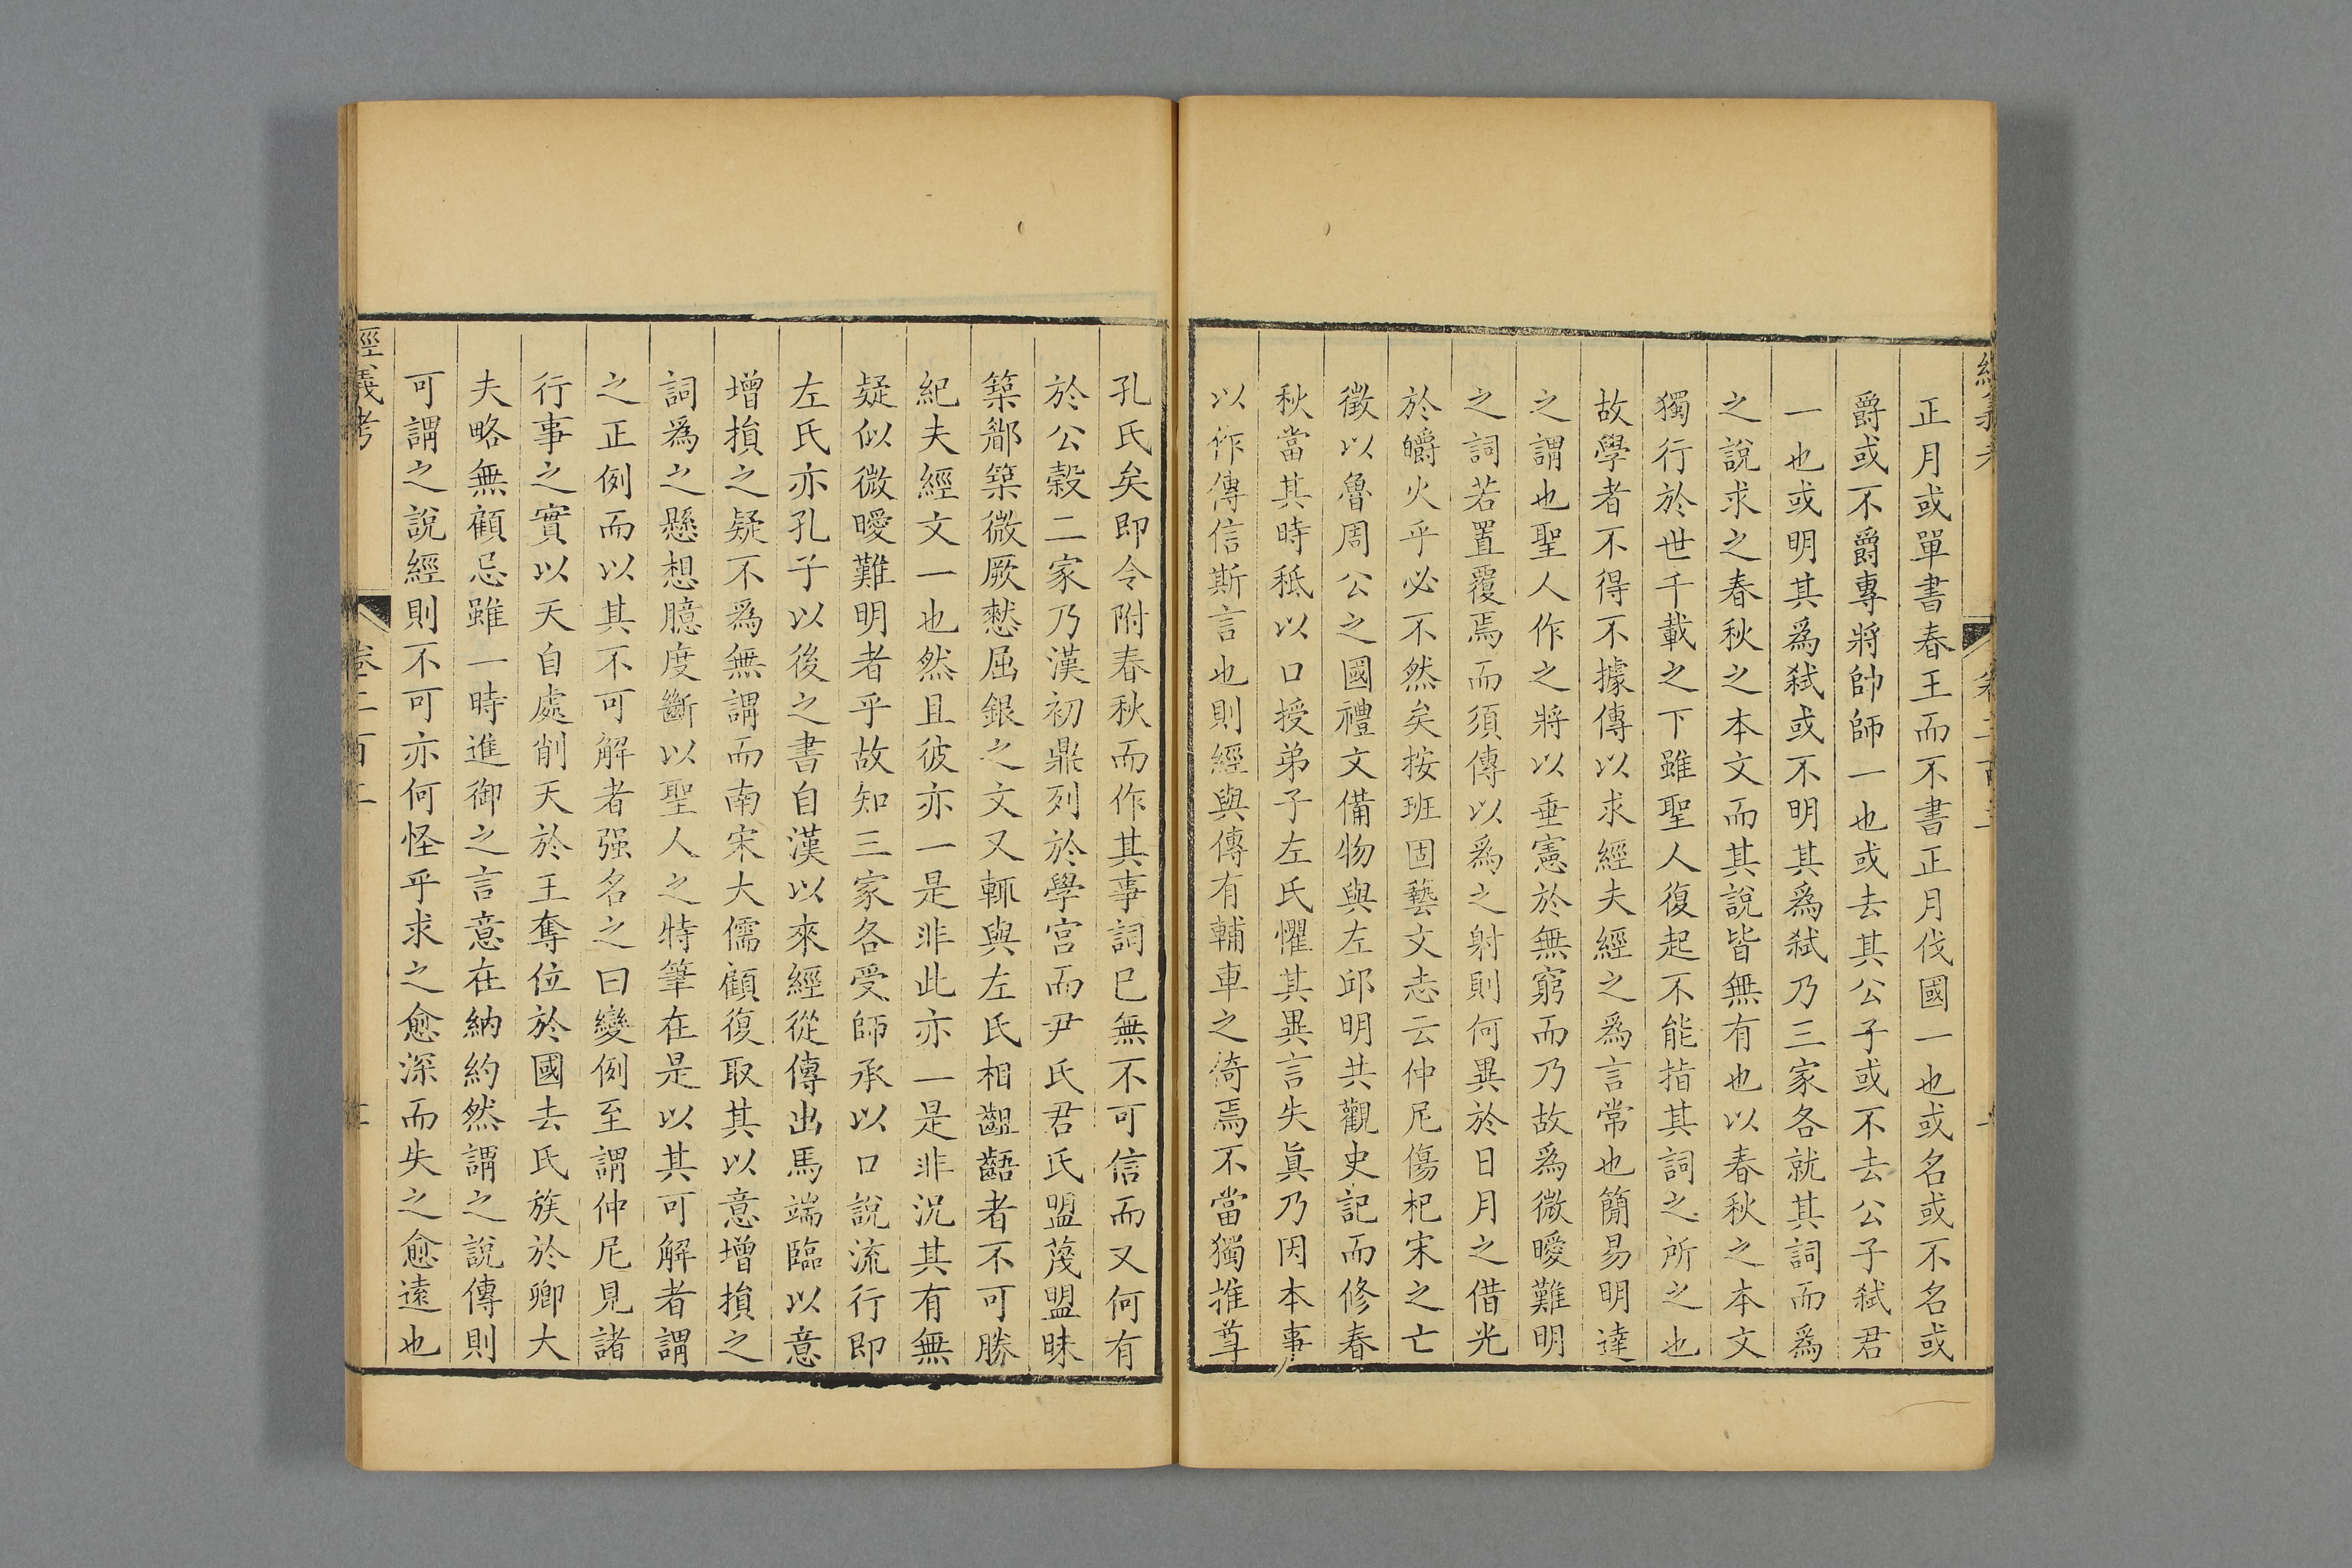 正月或單書春王而不書正月伐國一也或名或不名或
爵或不爵專將帥師一也或去其公子或不去公子弑君
一也或明其爲弑或不明其爲弑乃三家各就其詞而爲
之說求之春秋之本文而其說皆無有也以春秋之本文
獨行於世千載之下雖聖人復起不能指其詞之所之也
故學者不得不據傳以求經夫經之爲言常也簡易明達
之謂也聖人作之將以垂憲於無窮而乃故爲微曖難明
之詞若置覆焉而須傳以爲之射則何異於日月之借光
於皭火乎必不然矣按班固藝文志云仲尼傷杞宋之亡
徵以魯周公之國禮文備物與左邱明共觀史記而修春
秋當其時秪以口授弟子左氏懼其異言失眞乃因本事
以作傳信斯言也則經與傳有輔車之倚焉不當獨推尊
孔氏矣即令附春秋而作其事詞已無不可信而又何有
於公穀二家乃漢初鼎列於學宮而尹氏君氏盟蔑盟昧
築鄫築微厥憖屈銀之文又輒與左氏相齟齬者不可勝
紀夫經文一也然且彼亦一是非此亦一是非況其有無
疑似微曖難明者乎故知三家各受師承以口說流行即
左氏亦孔子以後之書自漢以來經從傳出馬端臨以意
增損之疑不爲無謂而南宋大儒顧復取其以意增損之
詞爲之懸想臆度斷以聖人之特筆在是以其可解者謂
之正例而以其不可解者强名之曰變例至謂仲尼見諸
行事之實以天自處削天於王奪位於國去氏族於卿大
夫略無顧忌雖一時進御之言意在納約然謂之說傳則
可謂之說經則不可亦何怪乎求之愈深而失之愈遠也
經義考
卷二百二